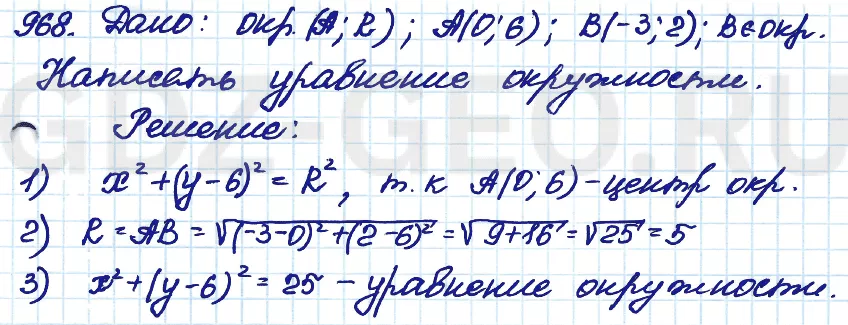 968. Дано: окр. (A; R); A(0; 6); B(-3; 2); B∈окр.
Написать уравнение окружности.
Решение:
1) x² + (y - 6)² = R², т.к A(0; 6) - центр окр.
2) R = AB = √(-3-0)² + (2-6)² = √9+16 = √25 = 5
3) x² + (y - 6)² = 25 - уравнение окружности.
GDZ-GEO.RU